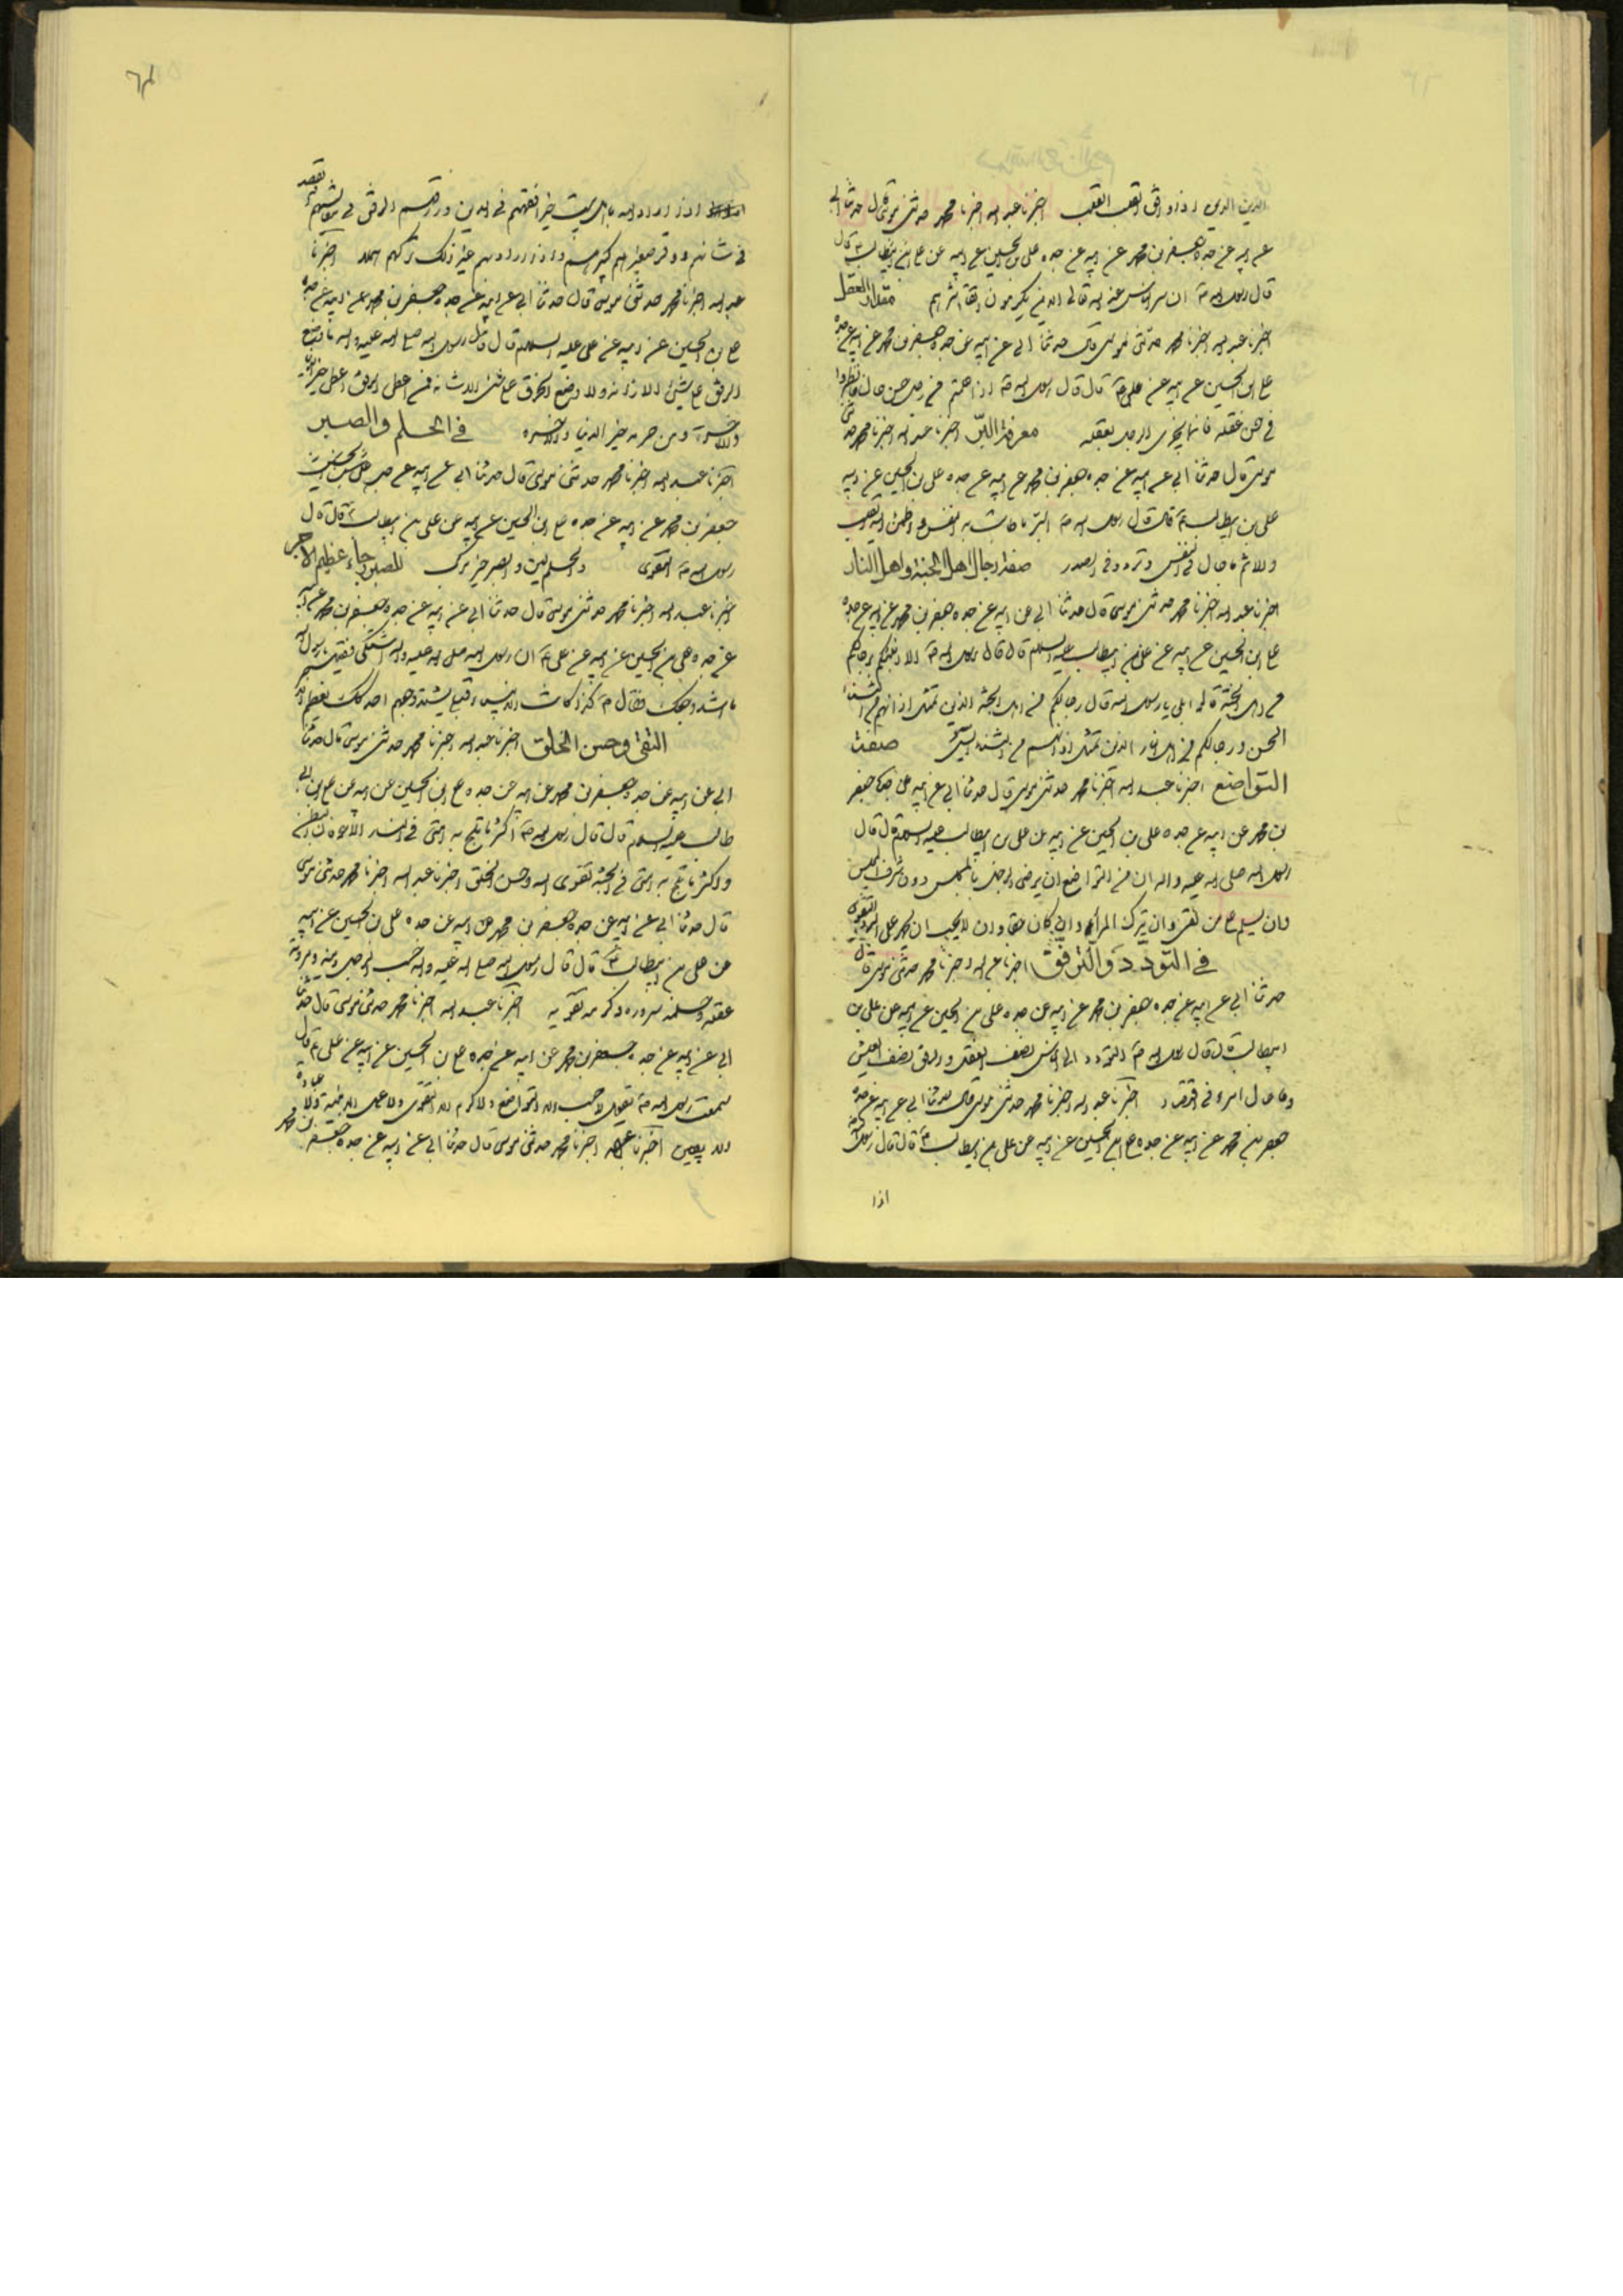 اخبرنا عبد الله اخبرنا محمد حدثنى موسى قال حدثنا ابى
عن ابيه عن جده جعفر بن محمد عن ابيه عن جده على بن الحسين عن ابيه عن على بن ابيطالب ع قال
قال رسول الله ص ان شر الناس عند الله الذين يكرمون اتقاء شرهم مقدار العقل
اخبرنا عبد الله اخبرنا محمد حدثنى موسى قال حدثنا ابى عن ابيه عن جده جعفر بن محمد عن ابيه عن جده
على بن الحسين عن ابيه عن على ع قال قال رسول الله ص اذا علمتم من رجل حسن حال فانظروا
فى حسن عقله فانما يجزى الرجل بعقله معرفة البرّ اخبرنا عبد الله اخبرنا محمد حدثنى
موسى قال حدثنا ابى عن ابيه عن جده جعفر بن محمد عن ابيه عن جده على بن الحسين عن ابيه
على بن ابيطالب ع قال قال رسول الله ص البر ما طابت به النفس و اطمئن اليه القلب
والاثم ما جال فى النفس و تردد فى الصدر صفة رجال اهل الجنة و اهل النار
اخبرنا عبد الله اخبرنا محمد حدثنى موسى قال حدثنا ابى عن ابيه عن جده جعفر بن محمد عن ابيه عن جده
على بن الحسين عن ابيه عن على بن ابيطالب عليه السلم قال قال رسول الله ص الا انبئكم برجالكم
من اهل الجنة قالوا بلى يا رسول الله قال رجالكم من اهل الجنة الذين تمتلى اذانهم من الثناء
الحسن و رجالكم من اهل النار الذين تمتلى اذانهم من الثناء السيئ صفت
التواضع اخبرنا عبد الله اخبرنا محمد حدثنى موسى قال حدثنا ابى عن ابيه عن جده جعفر
بن محمد عن ابيه عن جده على بن الحسين عن ابيه عن على بن ابيطالب عليه السلم قال قال
رسول الله صلى الله عليه واله ان من التواضع ان يرضى الرجل بالمجلس دون شرف المجلس
وان يسلم على من لقى وان يترك المراء وان كان محقا وان لا يحب ان يحمد على البر والتقوى
فى التودد والترفق اخبرنا عبد الله اخبرنا محمد حدثنى موسى قال
حدثنا ابى عن ابيه عن جده جعفر بن محمد عن ابيه عن جده على بن الحسين عن ابيه عن على بن
ابيطالب ع قال قال رسول الله ص التودد الى الناس نصف العقل والرفق نصف العيش
وما عال امرء فى اقتصاد اخبرنا عبد الله اخبرنا محمد حدثنى موسى قال حدثنا ابى عن ابيه عن جده
جعفر بن محمد عن ابيه عن جده على بن الحسين عن ابيه عن على بن ابيطالب ع قال قال رسول الله
اذا
اذا اراد الله باهل بيت خيرا فقههم فى الدين ورزقهم الرفق فى معايشهم والقصد
فى شانهم و وقر صغيرهم كبيرهم و اذا اراد بهم غير ذلك تركهم هملا اخبرنا
عبد الله اخبرنا محمد حدثنى موسى قال حدثنا ابى عن ابيه عن جده جعفر بن محمد عن ابيه عن جده
على بن الحسين عن ابيه عن على عليه السلم قال قال رسول الله صلى الله عليه واله ما وضع
الرفق على شىء الا زانه ولا وضع الخرق على شىء الا شانه فمن اعطى الرفق اعطى خير الدنيا
والاخرة ومن حرمه حرم خير الدنيا والاخرة فى الحلم والصبر
اخبرنا عبد الله اخبرنا محمد حدثنى موسى قال حدثنا ابى عن ابيه عن جده
جعفر بن محمد عن ابيه عن جده على بن الحسين عن ابيه عن على بن ابيطالب ع قال قال
رسول الله ص التقوى والحلم زين والصبر خير مركب للصبر رجاء عظيم الاجر
اخبرنا عبد الله اخبرنا محمد حدثنى موسى قال حدثنا ابى عن ابيه عن جده جعفر بن محمد عن ابيه
عن جده على بن الحسين عن ابيه عن على ع ان رسول الله صلى الله عليه واله اشتكى فقيل يا رسول الله
ما اشد وجعك فقال ص كذا كانت الانبياء قبلى يشتد وجعهم
التقى و حسن الخلق اخبرنا عبد الله اخبرنا محمد حدثنى موسى قال حدثنا
ابى عن ابيه عن جده جعفر بن محمد عن ابيه عن جده على بن الحسين عن ابيه عن على بن ابى
طالب عليه السلم قال قال رسول الله ص اكثر ما تلج به امتى فى النار الاجوفان البطن
واكثر ما تلج به امتى فى الجنة تقوى الله وحسن الخلق اخبرنا عبد الله اخبرنا محمد حدثنى موسى
قال حدثنا ابى عن ابيه عن جده جعفر بن محمد عن ابيه عن جده على بن الحسين عن ابيه
عن على بن ابيطالب ع قال قال رسول الله صلى الله عليه واله حسب الرجل دينه ومروته
عقله وحلمه سروره وكرمه تقويه اخبرنا عبد الله اخبرنا محمد حدثنى موسى قال حدثنا
ابى عن ابيه عن جده جعفر بن محمد عن ابيه عن جده على بن الحسين عن ابيه عن على ع قال
سمعت رسول الله ص يقول لا حسب الا التواضع ولا كرم الا التقوى ولا عمل الا بنية ولا عبادة
الا بيقين اخبرنا عبد الله اخبرنا محمد حدثنى موسى قال حدثنا ابى عن ابيه عن جده جعفر بن محمد